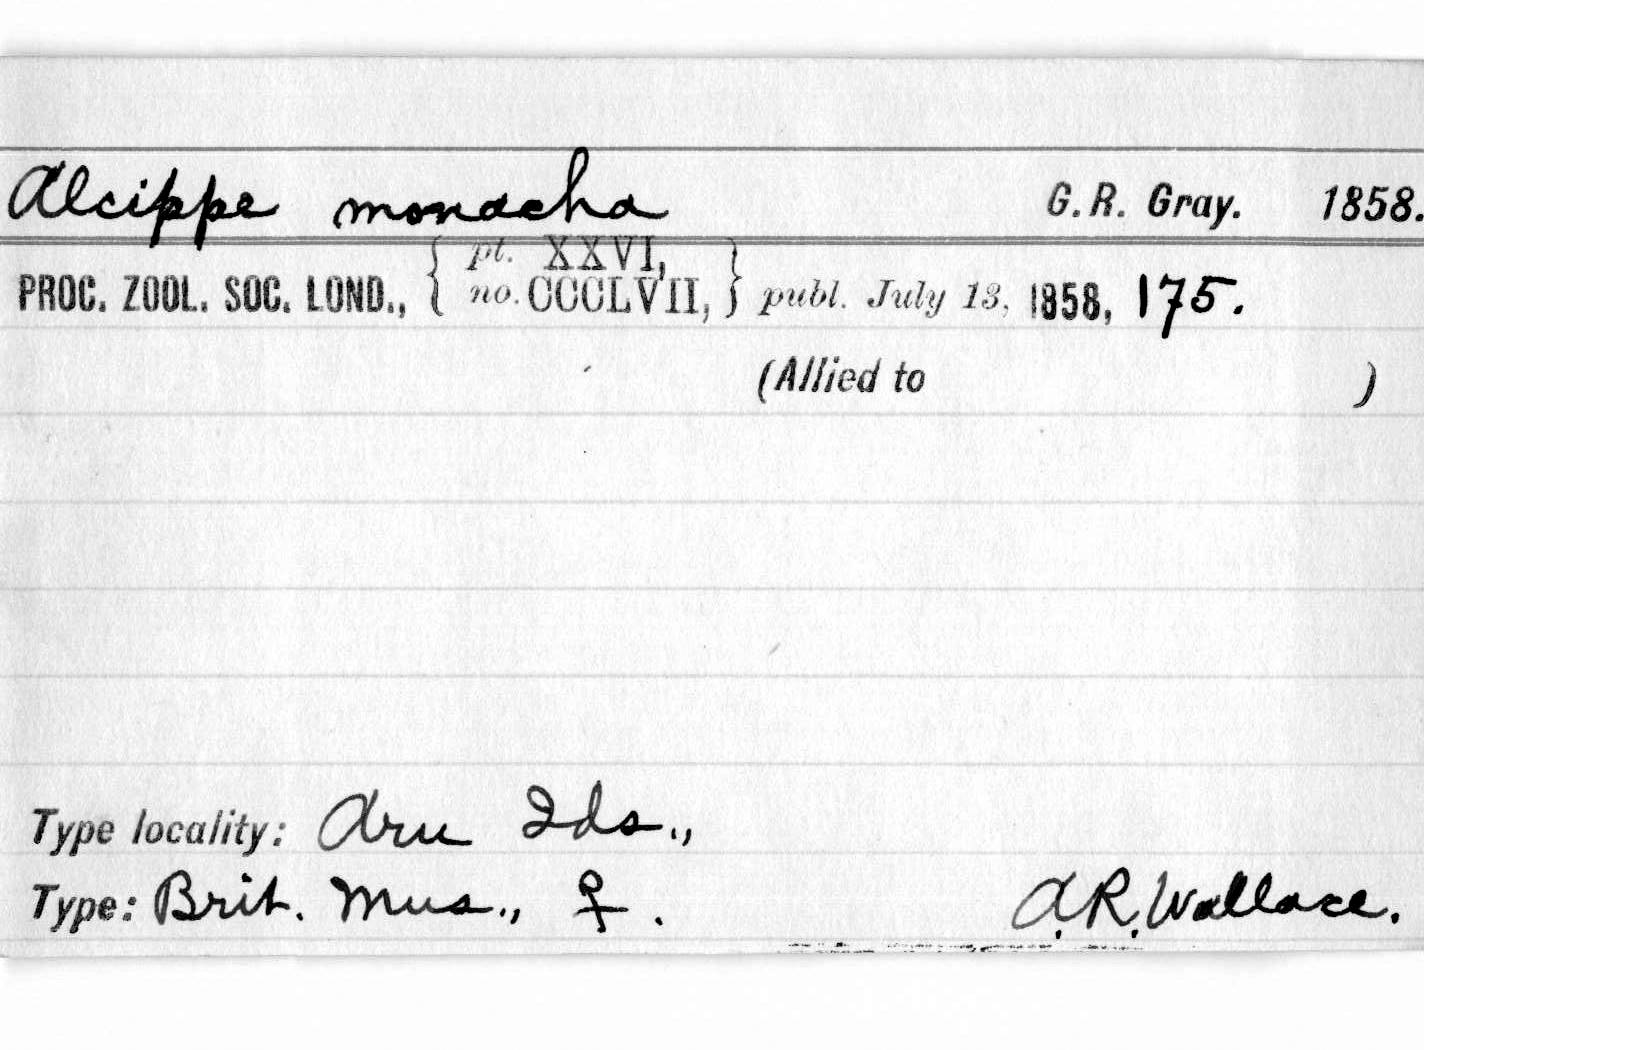 Alcippe monacha G. R. Gray. 1858.
PROC. ZOOL. SOC. LOND., { pt. XXVI, no. CCCLVII, } publ. July 13, 1858, 175.
(Allied to )
Type locality: Aru Ids.,
Type: Brit. Mus., ♀. A. R. Wallace.